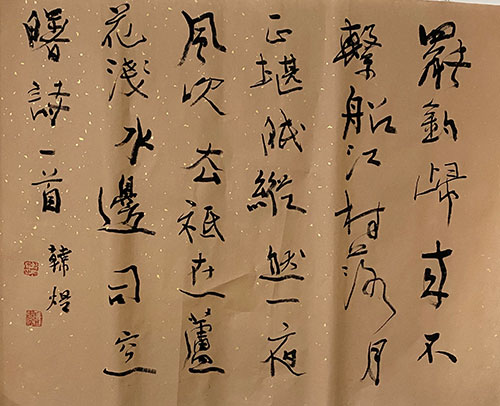 罷釣歸來不
繫船江村落月
正堪眠縱然一夜
風吹去祇在蘆
花淺水邊司空
曙詩一首
韓煜